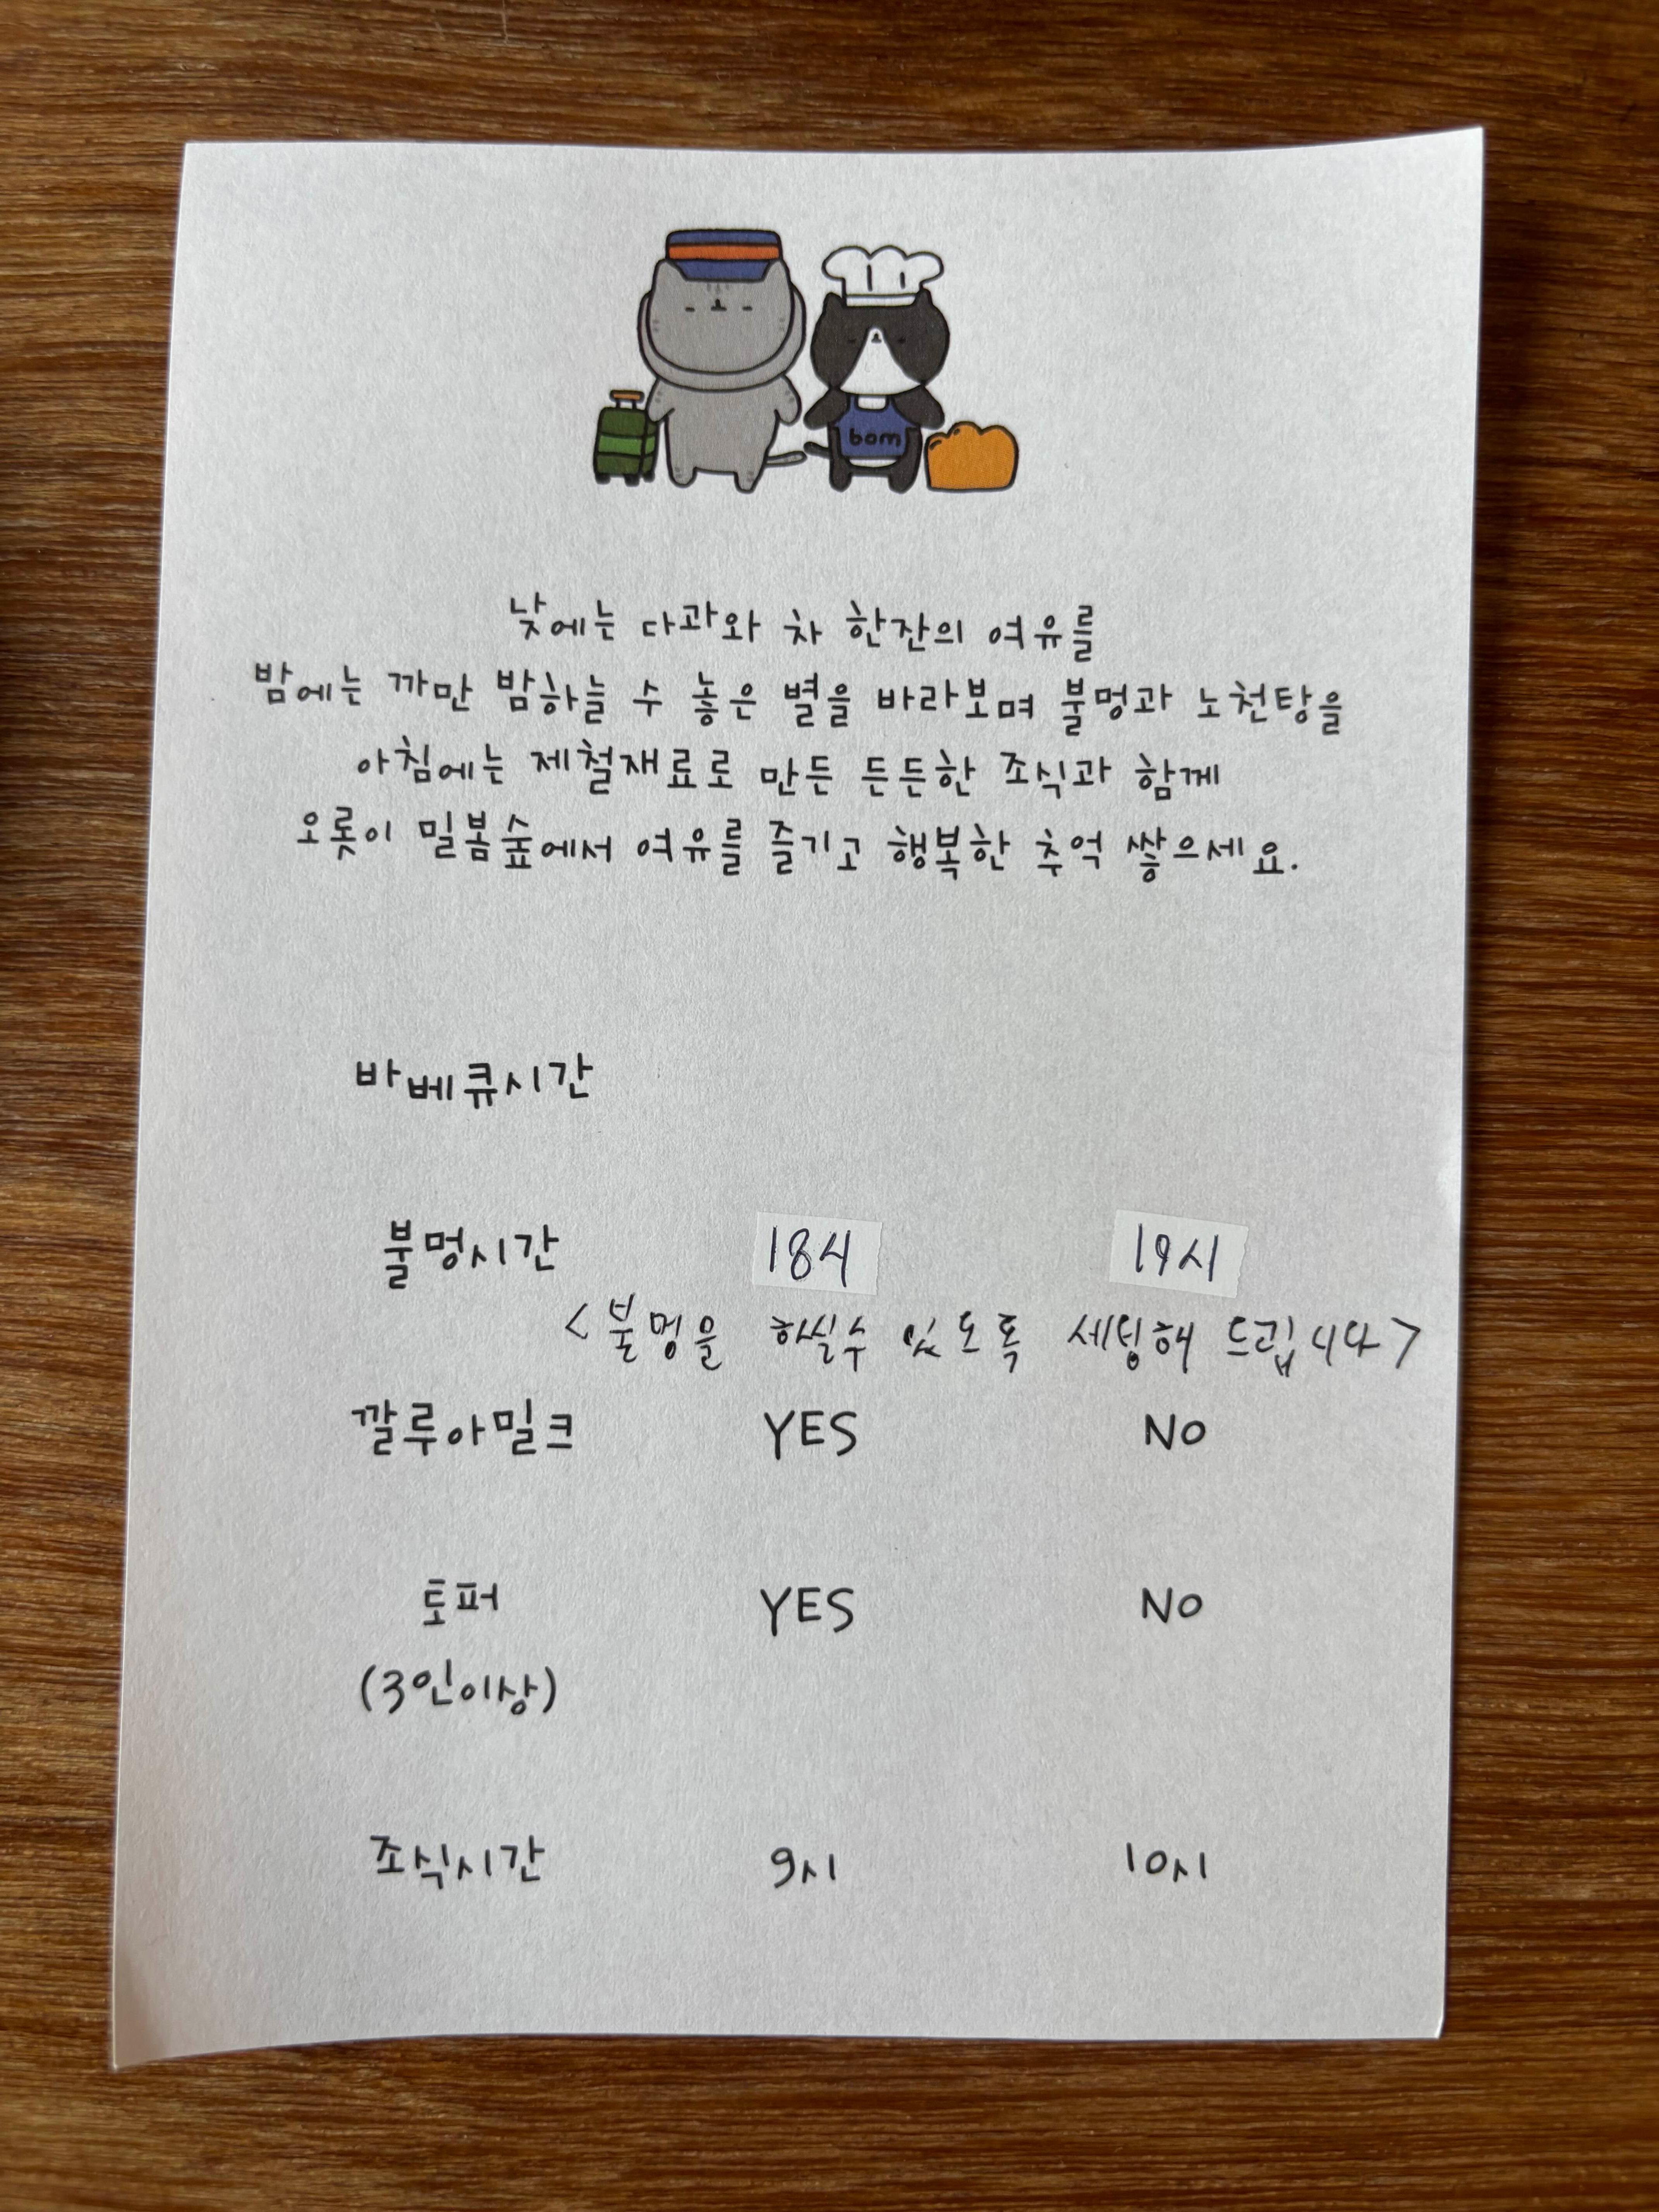 bom
낮에는 다과와 차 한잔의 여유를
밤에는 까만 밤하늘 수 놓은 별을 바라보며 불멍과 노천탕을
아침에는 제철재료로 만든 든든한 조식과 함께
오롯이 밀봄숲에서 여유를 즐기고 행복한 추억 쌓으세요.
바베큐시간
불멍시간 18시 19시
<불멍을 하실수 있도록 세팅해 드립니다>
깔루아밀크 YES NO
토퍼 YES NO
(3인이상)
조식시간 9시 10시